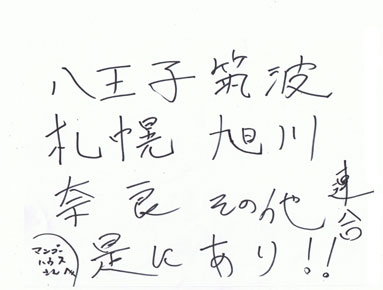 八王子 筑波
札幌 旭川
奈良 その他
連合
是にあり!!
マンゴー
ハウス